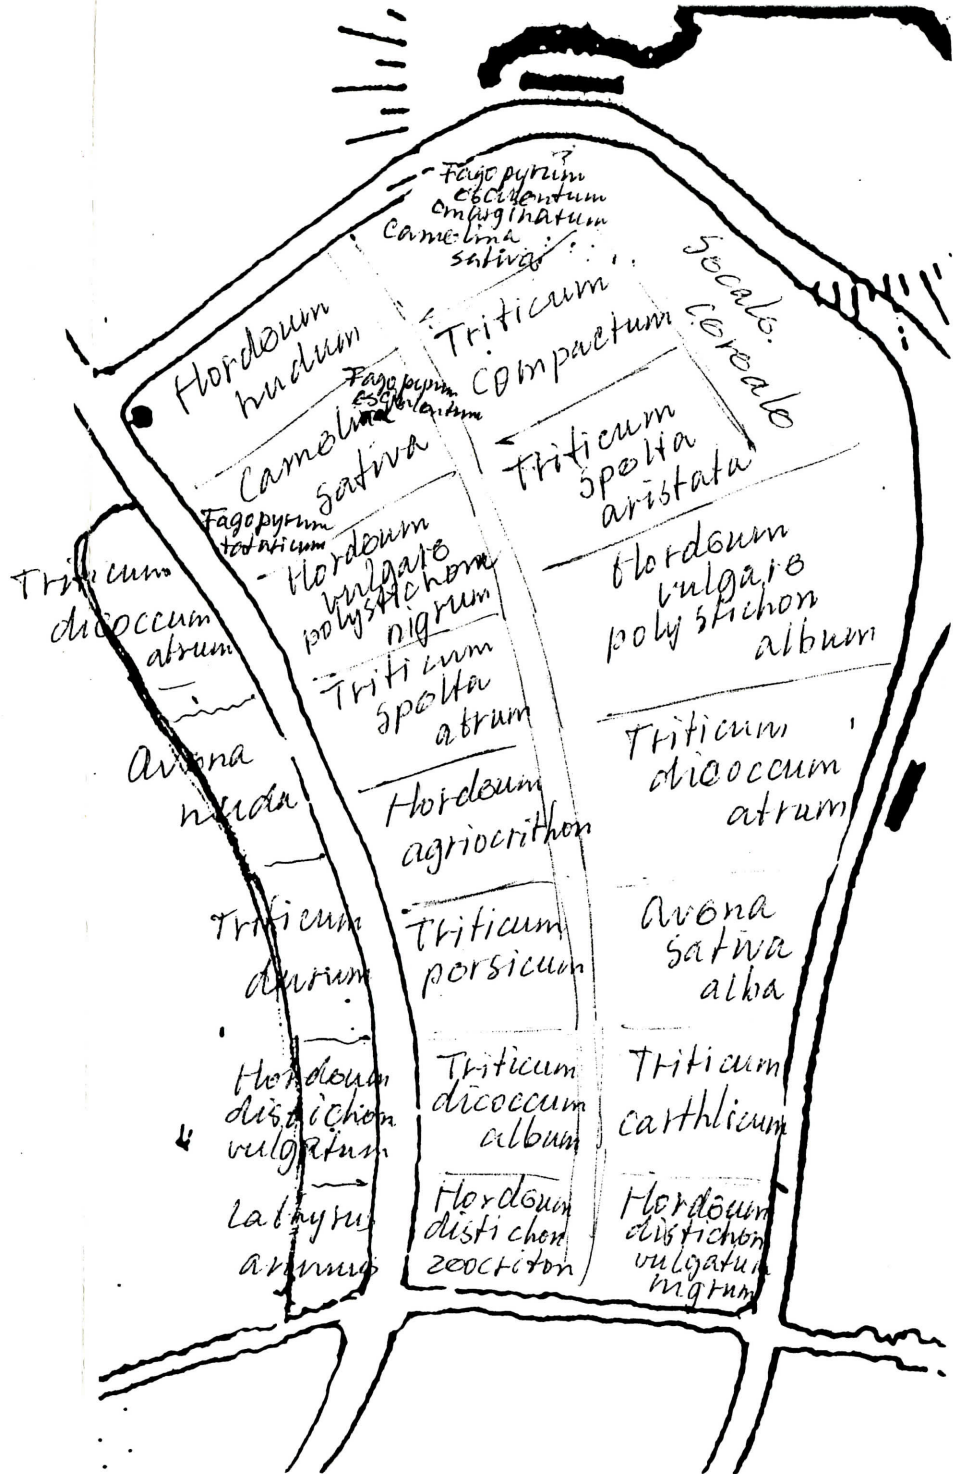 Fagopyrum
esculentum
emarginatum
Camelina
sativa
Secale
cereale
Hordeum
nudum
Triticum
compactum
Fagopyrum
esculentum
Camelina
sativa
Triticum
spelta
aristata
Fagopyrum
tataricum
Hordeum
vulgare
polystichon
nigrum
Hordeum
vulgare
polystichon
album
Triticum
dicoccum
atrum
Triticum
spelta
atrum
Triticum
dicoccum
atrum
Avena
nuda
Hordeum
agriocrithon
Triticum
durum
Triticum
persicum
Avena
sativa
alba
Hordeum
distichon
vulgatum
Triticum
dicoccum
album
Triticum
carthlicum
Lathyrus
annuus
Hordeum
distichon
zeocriton
Hordeum
distichon
vulgatum
nigrum